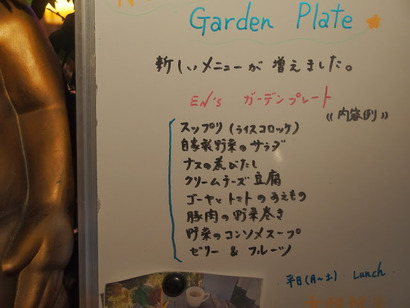 Garden Plate
新しいメニューが増えました。
EN's ガーデンプレート
《内容例》
スップリ(ライスコロッケ)
自家製野菜のサラダ
ナスの煮びたし
クリームチーズ豆腐
ゴーヤとトマトの
豚肉の野菜巻き
野菜のコンソメスープ
ゼリー & フルーツ
平日(月〜土) Lunch